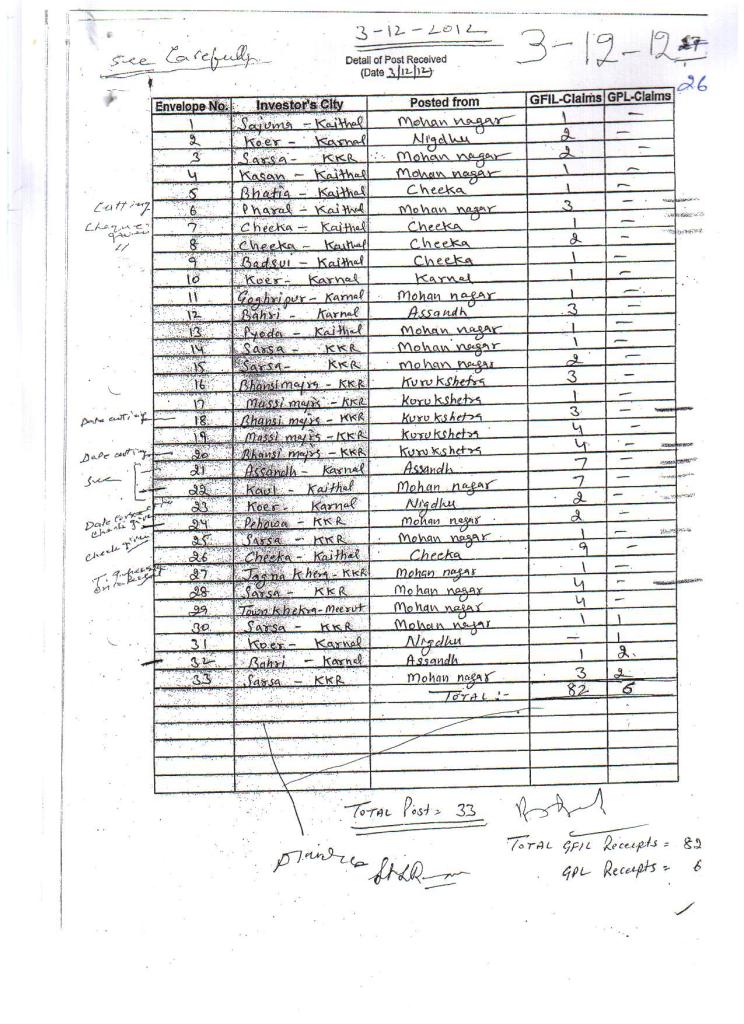 3-12-2012
3-12-12 27
See Carefully
Detail of Post Received
(Date 3/12/12)
26
Envelope No. Investor's City Posted from GFIL-Claims GPL-Claims
1 Sajuma - Kaithal Mohan nagar 1 -
2 Koer - Karnal Nigdhu 2
3 Sarsa - KKR Mohan nagar 2 -
4 Kasan - Kaithal Mohan nagar 1 -
5 Bhatia - Kaithal Cheeka 1 -
Cutting 6 Pharal - Kaithal Mohan nagar 3 -
Cheque given 7 Cheeka - Kaithal Cheeka 1 -
" 8 Cheeka - Kaithal Cheeka 2 -
9 Badsui - Kaithal Cheeka 1 -
10 Koer - Karnal Karnal 1 -
11 Goghripur - Karnal Mohan nagar 1 -
12 Bahri - Karnal Assandh 3 -
13 Pyoda - Kaithal Mohan nagar 1 -
14 Sarsa - KKR Mohan nagar 1 -
15 Sarsa - KKR Mohan nagar 2 -
16 Bhansi majra - KKR Kurukshetra 3 -
17 Massi majra - KKR Kurukshetra 1 -
Date cutting 18 Bhansi majra - KKR Kurukshetra 3 -
19 Massi majra - KKR Kurukshetra 4 -
Date cutting 20 Bhansi majra - KKR Kurukshetra 4 -
See 21 Assandh - Karnal Assandh 7 -
22 Kaul - Kaithal Mohan nagar 7 -
23 Koer - Karnal Nigdhu 2 -
Date 24 Pehowa - KKR Mohan nagar 2 -
Check given 25 Sarsa - KKR Mohan nagar 1 -
Check given 26 Cheeka - Kaithal Cheeka 9 -
27 Jagna Khera - KKR Mohan nagar 1 -
28 Sarsa - KKR Mohan nagar 4 -
29 Town Khekra - Meerut Mohan nagar 4 -
30 Sarsa - KKR Mohan nagar 1 1
31 Koer - Karnal Nigdhu - 1
32 Bahri - Karnal Assandh 1 2
33 Sarsa - KKR Mohan nagar 3 2
TOTAL :- 82 6
TOTAL Post = 33
TOTAL GFIL Receipts = 82
GPL Receipts = 6